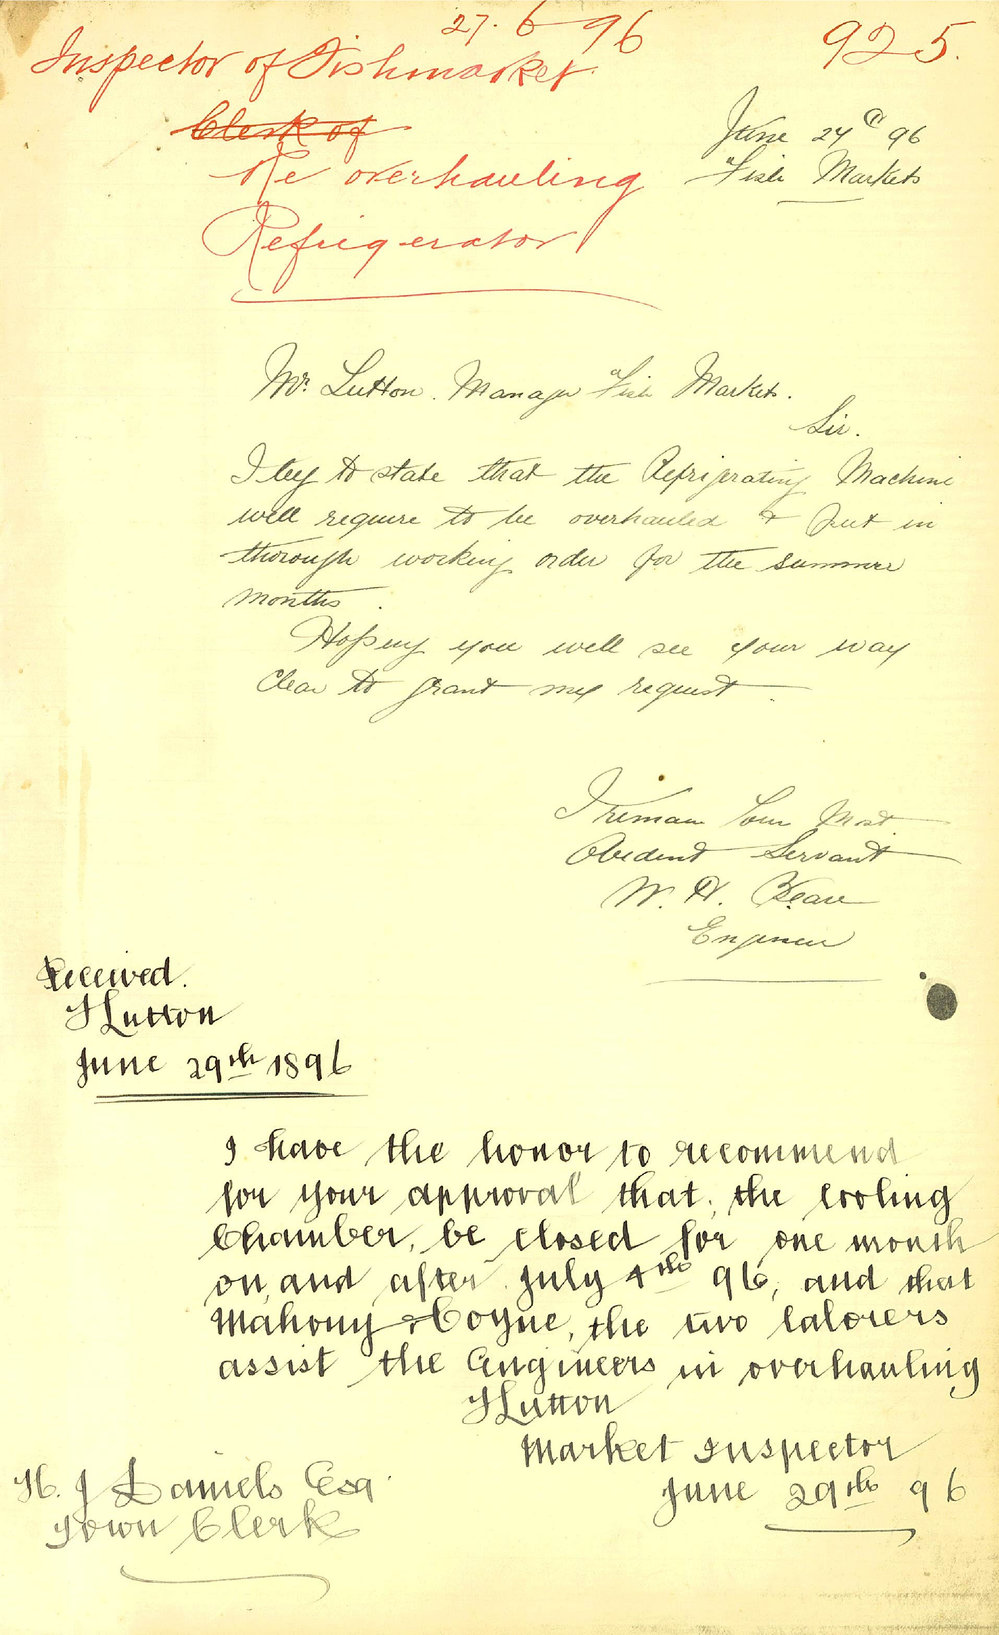 27.6 96
925.
Inspector of Fishmarket
Clerk of
Re overhauling
Refrigerator
June 27th 96
Fish Markets
Mr. Lutton. Manager Fish Markets.
Sir.
I beg to state that the Refrigerating Machine
will require to be overhauled & put in
thorough working order for the summer
months.
Hoping you will see your way
clear to grant my request.
I remain Your Most
Obedient Servant
W. H.
Engineer
Received.
J Lutton
June 29th 1896
I have the honor to recommend
for your approval that, the Cooling
Chamber, be closed for one month
on, and after July 4th 96, and that
Mahony & Coyne, the two laborers
assist the Engineers in overhauling
J Lutton
Market Inspector
June 29th 96
H. J Daniels Esq.
Town Clerk